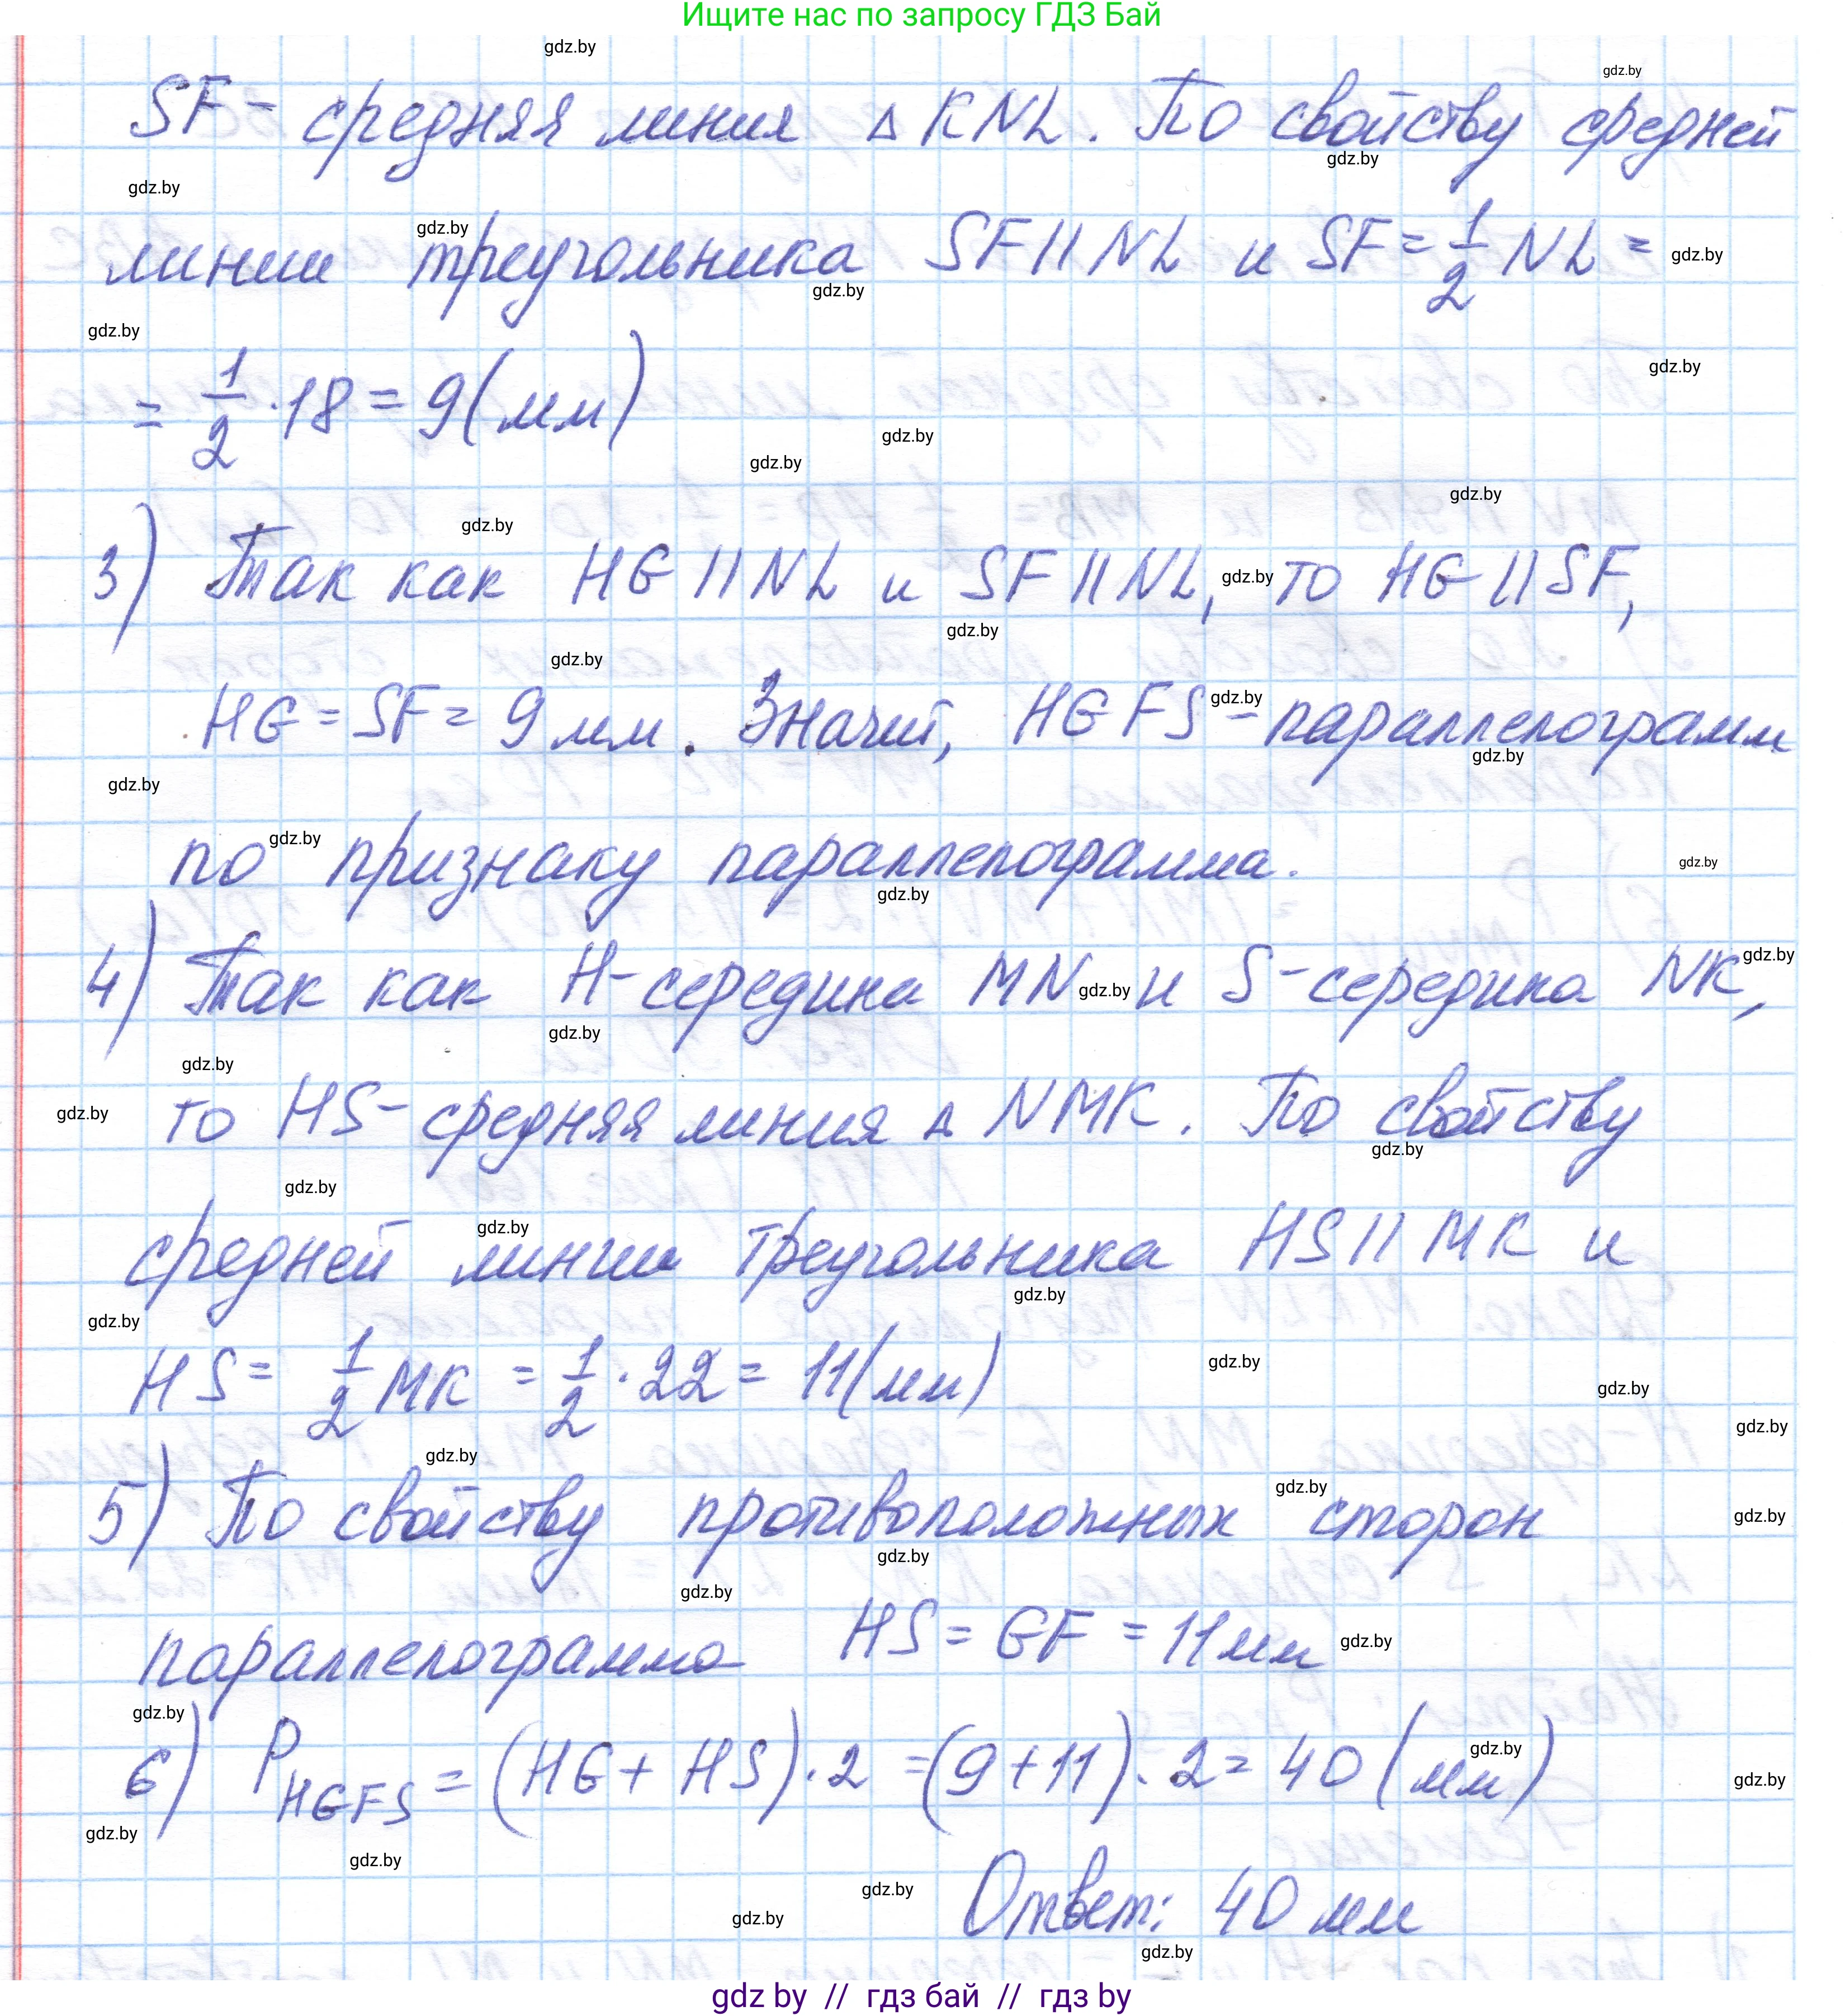 Ищите нас по запросу ГДЗ Бай
SF - средняя линия △ KNL. По свойству средней
линии треугольника SF || NL и SF = 1/2 NL =
= 1/2 · 18 = 9 (мм)
3) Так как HG || NL и SF || NL, то HG || SF,
HG = SF = 9 мм. Значит, HGFS - параллелограмм
по признаку параллелограмма.
4) Так как H - середина MN и S - середина NK,
то HS - средняя линия △ NMK. По свойству
средней линии треугольника HS || MK и
HS = 1/2 MK = 1/2 · 22 = 11 (мм)
5) По свойству противоположных сторон
параллелограмма HS = GF = 11 мм
6) P HGFS = (HG + HS) · 2 = (9 + 11) · 2 = 40 (мм)
Ответ: 40 мм
gdz by // гдз бай // гдз by